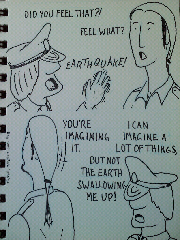 DID YOU FEEL THAT?!
FEEL WHAT?
EARTHQUAKE!
YOU'RE
IMAGINING
IT.
I CAN
IMAGINE A
LOT OF THINGS,
BUT NOT
THE EARTH
SWALLOWING
ME UP!